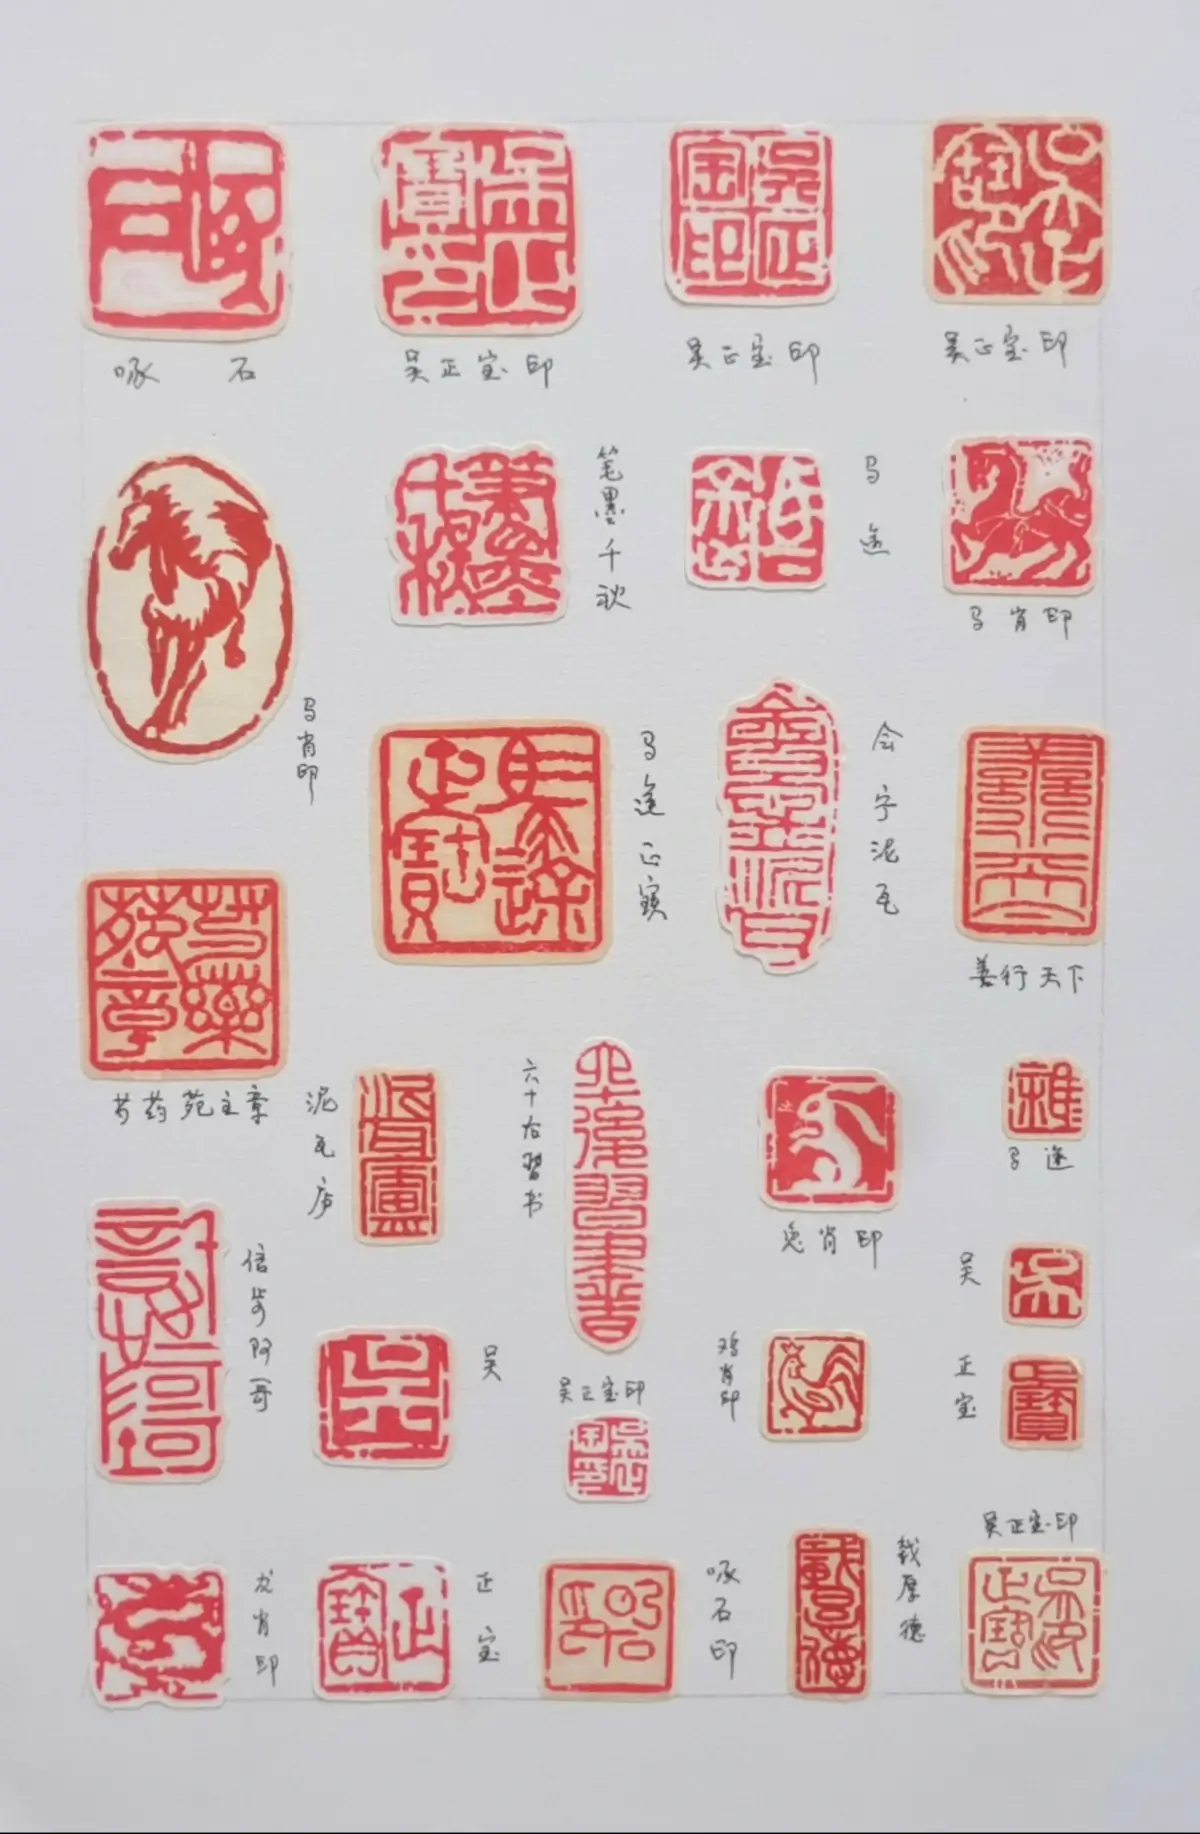 啄石
吴正宝印
吴正宝印
吴正宝印
笔墨千秋
马途
马肖印
马肖印
马途正寳
会宁泥瓦
善行天下
芍药苑主章
泥瓦庐
六十后习书
兔肖印
马途
信步阿哥
吴
吴正宝印
鸡肖印
吴
正宝
龙肖印
正宝
啄石印
载厚德
吴正宝印